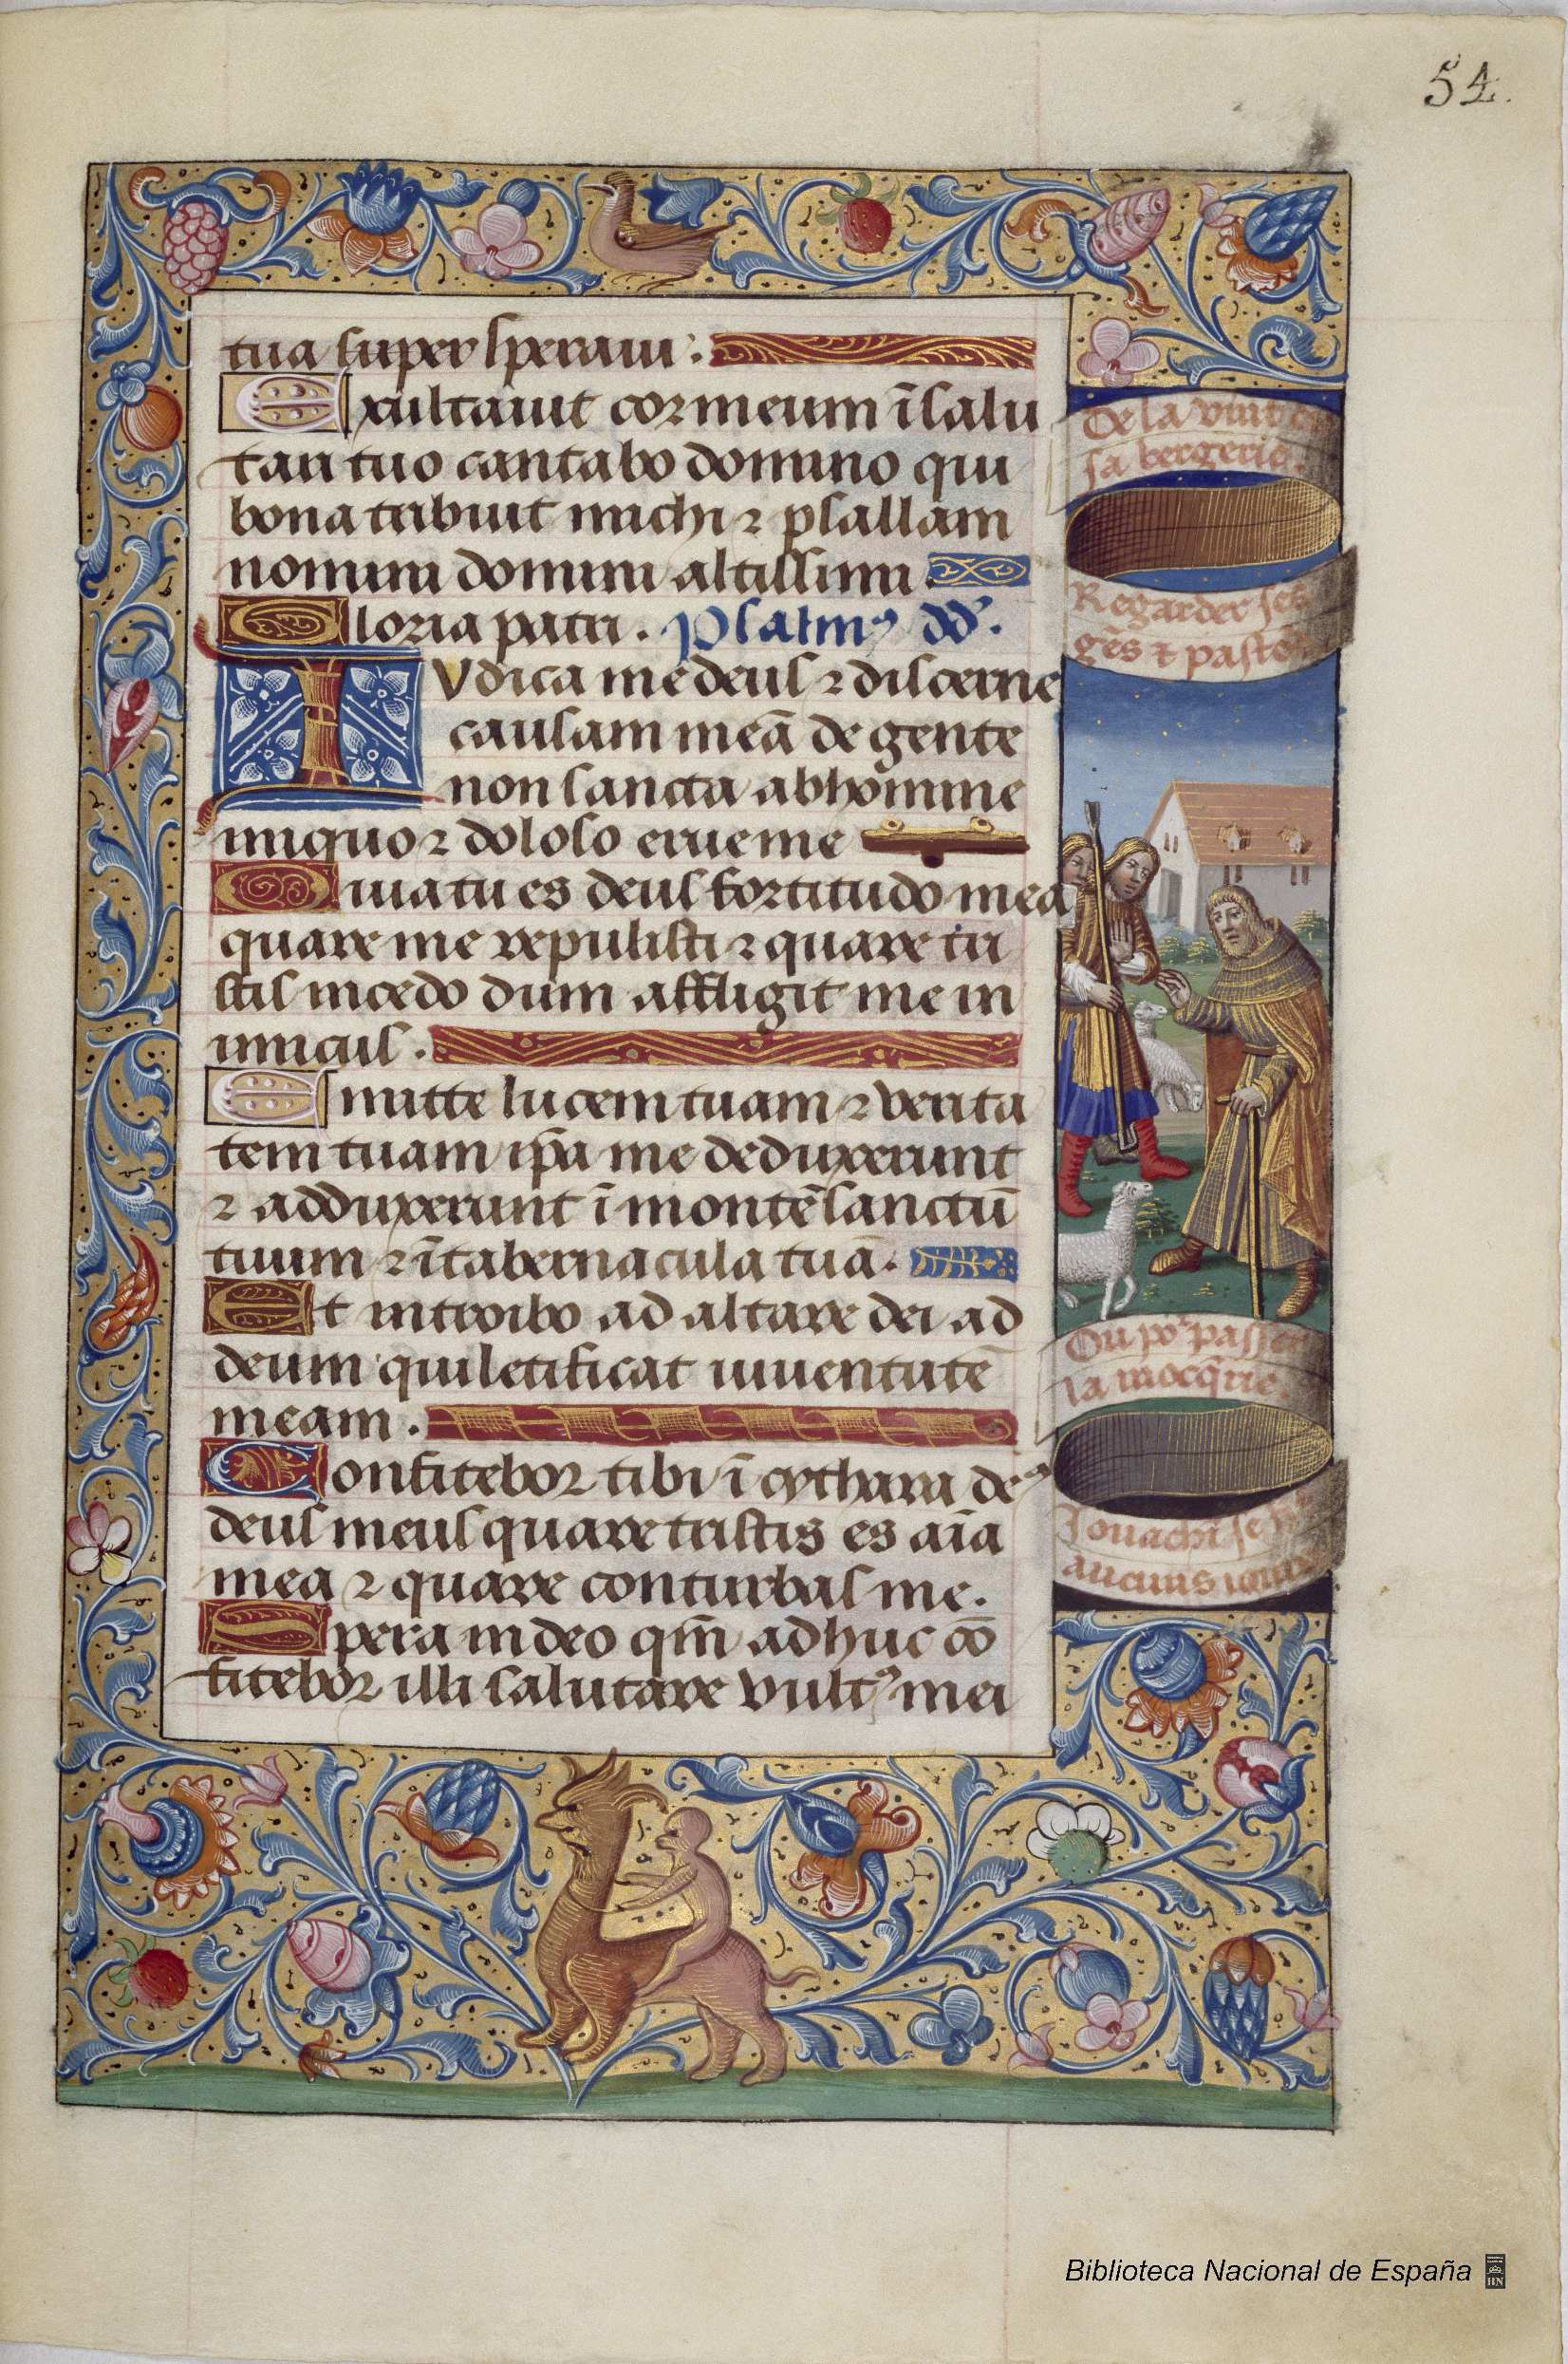 54.
tua super speraui:
Exultauit cor meum ī salu
tari tuo cantabo domino qui
bona tribuit michi ⁊ psallam
nomini domini altissimi.
Gloria patri. Psalmꝰ dd̄.
Iudica me deus ⁊ discerne
causam meā de gente
non sancta ab homine
iniquo ⁊ doloso erue me
Quia tu es deus fortitudo mea
quare me repulisti ⁊ quare tri
stis incedo dum affligit me in
imicus.
Emitte lucem tuam ⁊ verita
tem tuam ip̄a me deduxerunt
⁊ adduxerunt ī montē sanctū
tuum ⁊ ī tabernacula tua.
Et introibo ad altare dei ad
deum qui letificat iuuentutē
meam.
Confitebor tibi ī cythara deꝰ
deus meus quare tristis es aīa
mea ⁊ quare conturbas me.
Spera in deo qm̄ adhuc cō
fitebor illi salutare vultꝰ mei
De la vint
sa bergerie.
Regarder ses
gēs ⁊ pasto
Ou poʳ passer
la mocq̄rie
Jouachī se
aucuns iours
Biblioteca Nacional de España